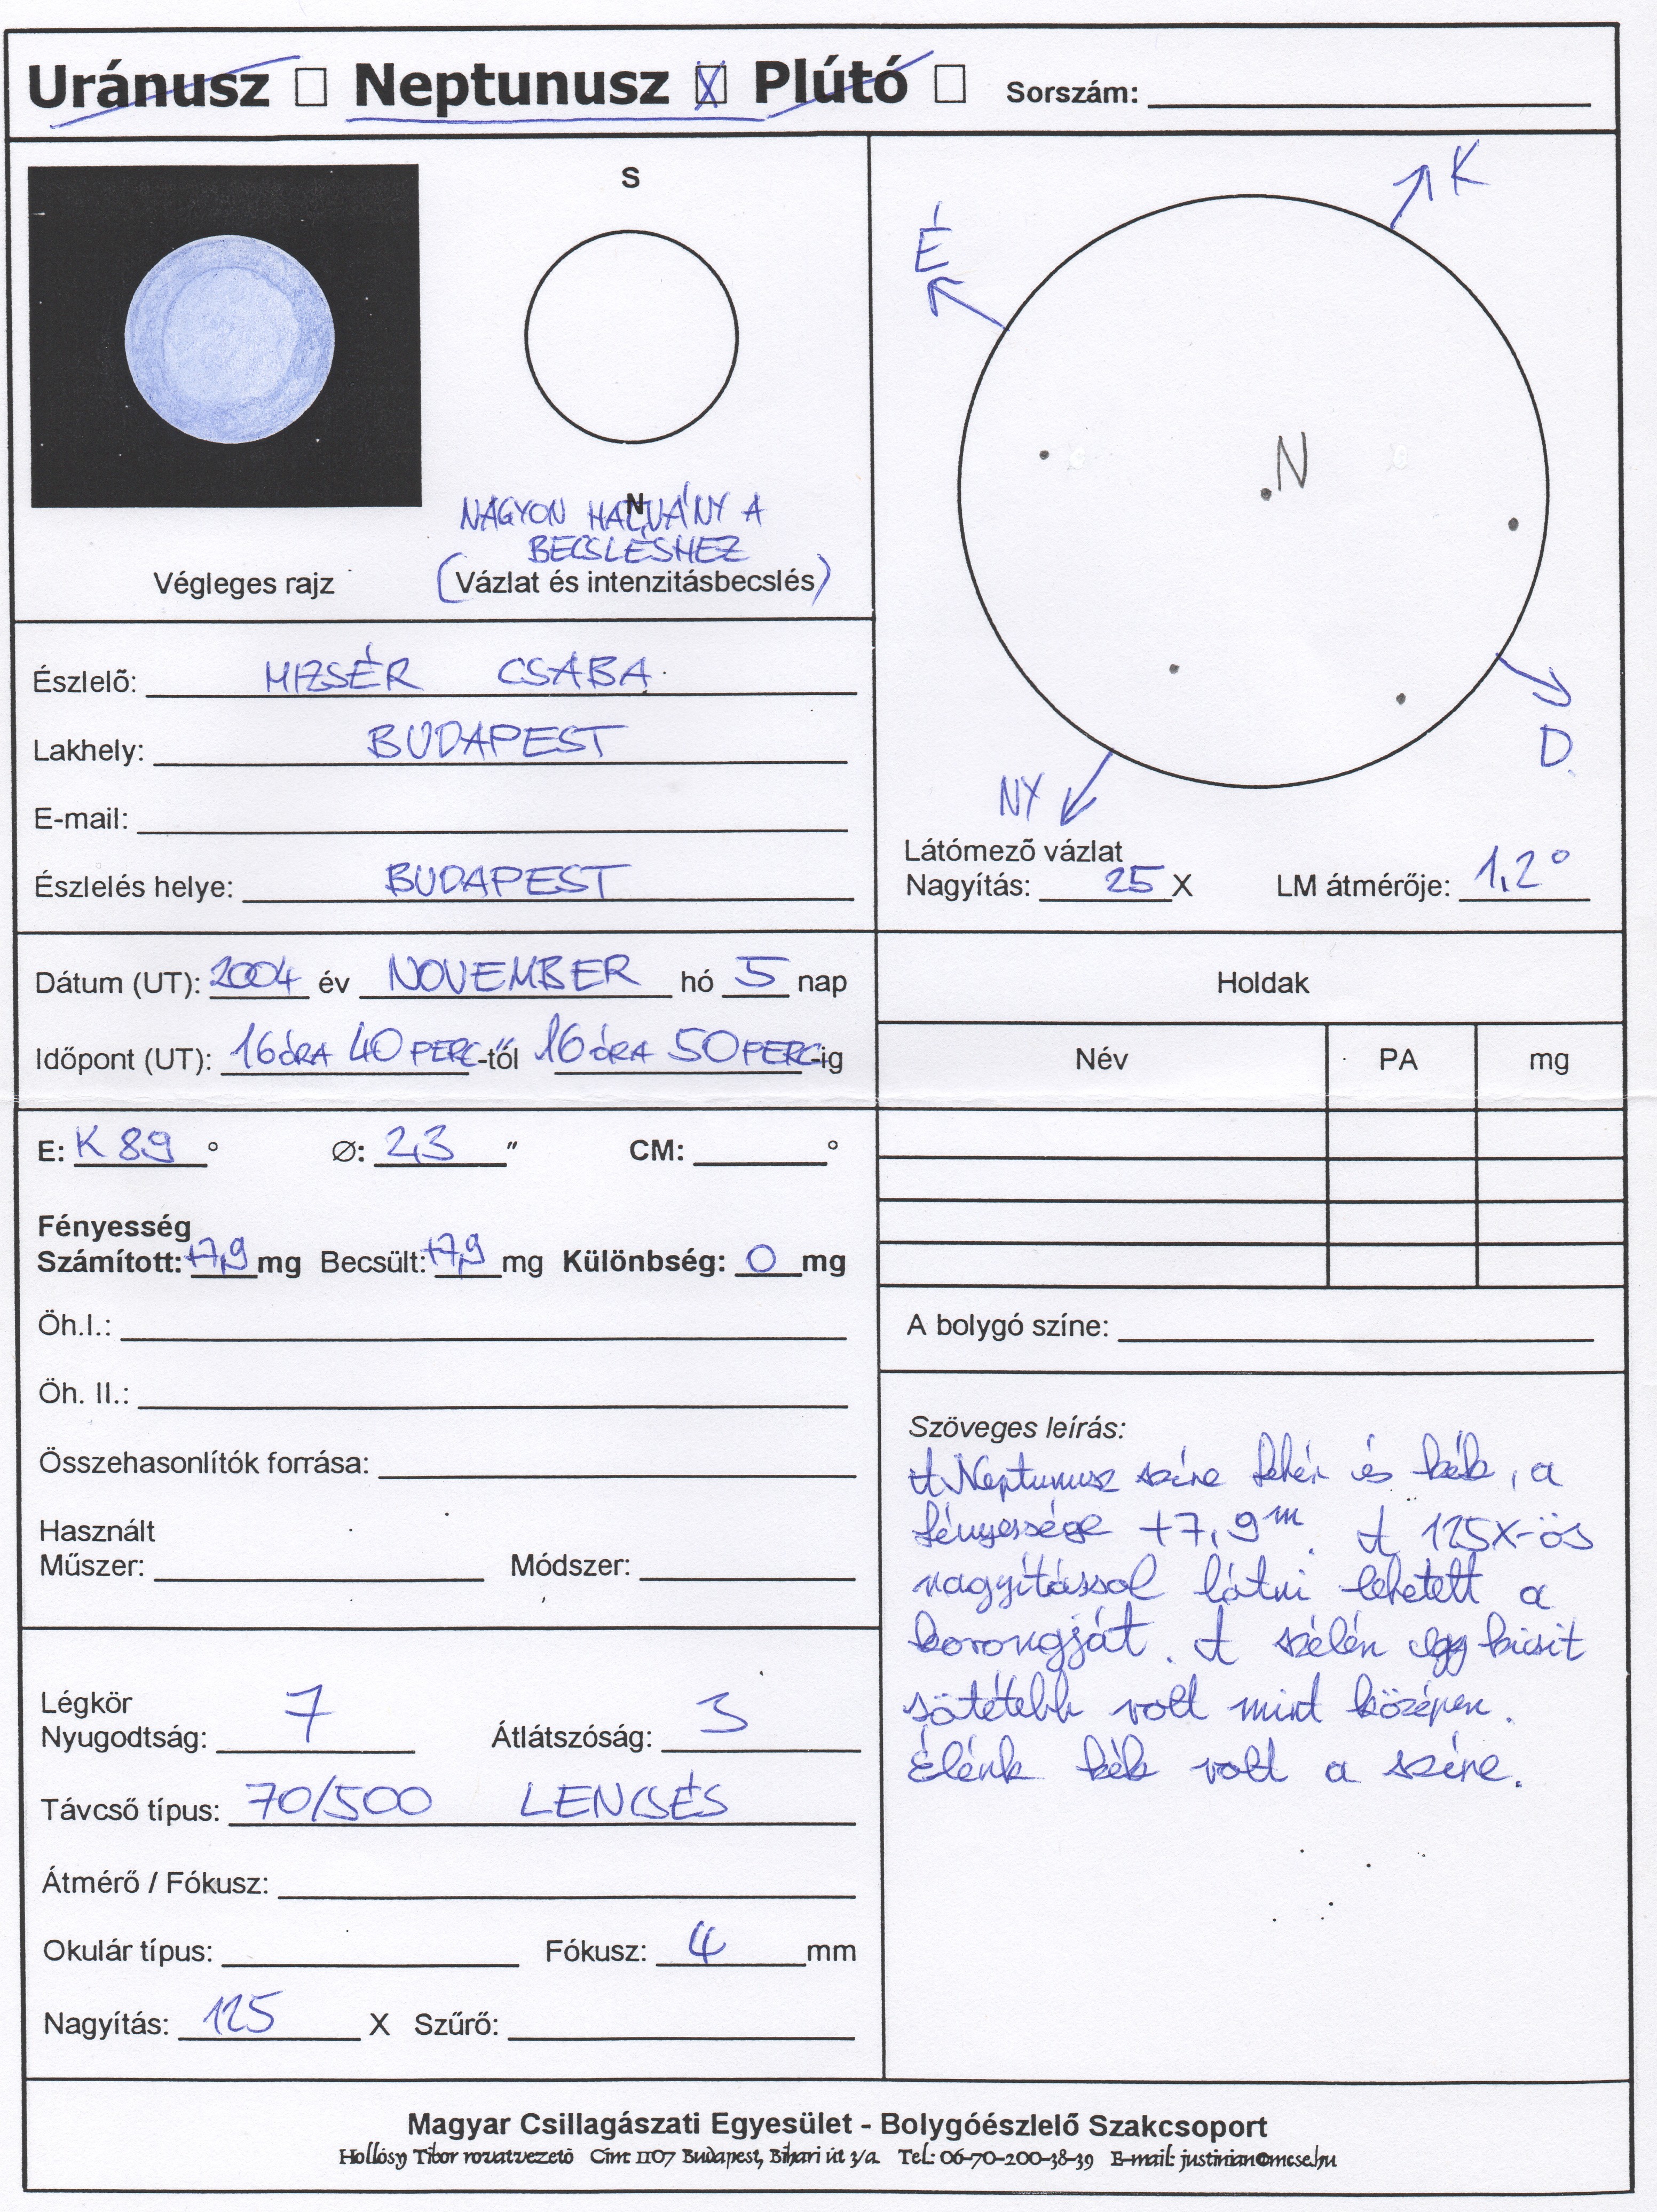 Uránusz □ Neptunusz ☒ Plútó □ Sorszám:
S
N
NAGYON HALVÁNY A
BECSLÉSHEZ
Végleges rajz
(Vázlat és intenzitásbecslés)
Észlelő: MIZSÉR CSABA
Lakhely: BUDAPEST
E-mail:
Észlelés helye: BUDAPEST
É
K
N
D
NY
Látómező vázlat
Nagyítás: 25 X LM átmérője: 1,2°
Dátum (UT): 2004 év NOVEMBER hó 5 nap
Időpont (UT): 16 ÓRA 40 PERC-től 16 ÓRA 50 PERC-ig
E: K 89 ° Ø: 2,3 " CM: °
Fényesség
Számított: +7,9 mg Becsült: +7,9 mg Különbség: 0 mg
Öh.I.:
Öh. II.:
Összehasonlítók forrása:
Használt
Műszer: Módszer:
Légkör
Nyugodtság: 7 Átlátszóság: 3
Távcső típus: 70/500 LENCSÉS
Átmérő / Fókusz:
Okulár típus: Fókusz: 4 mm
Nagyítás: 125 X Szűrő:
Holdak
Név PA mg
A bolygó színe:
Szöveges leírás:
A Neptunusz színe fehér és kék, a
fényessége +7,9m. A 125X-ös
nagyítással látni lehetett a
korongját. A szélén egy kicsit
sötétebb volt mint középen.
Élénk kék volt a színe.
Magyar Csillagászati Egyesület - Bolygóészlelő Szakcsoport
Hollósy Tibor rovatvezető Cím: 1107 Budapest, Bihari út 3/a. Tel.: 06-70-200-38-39 E-mail: justinian@mcse.hu